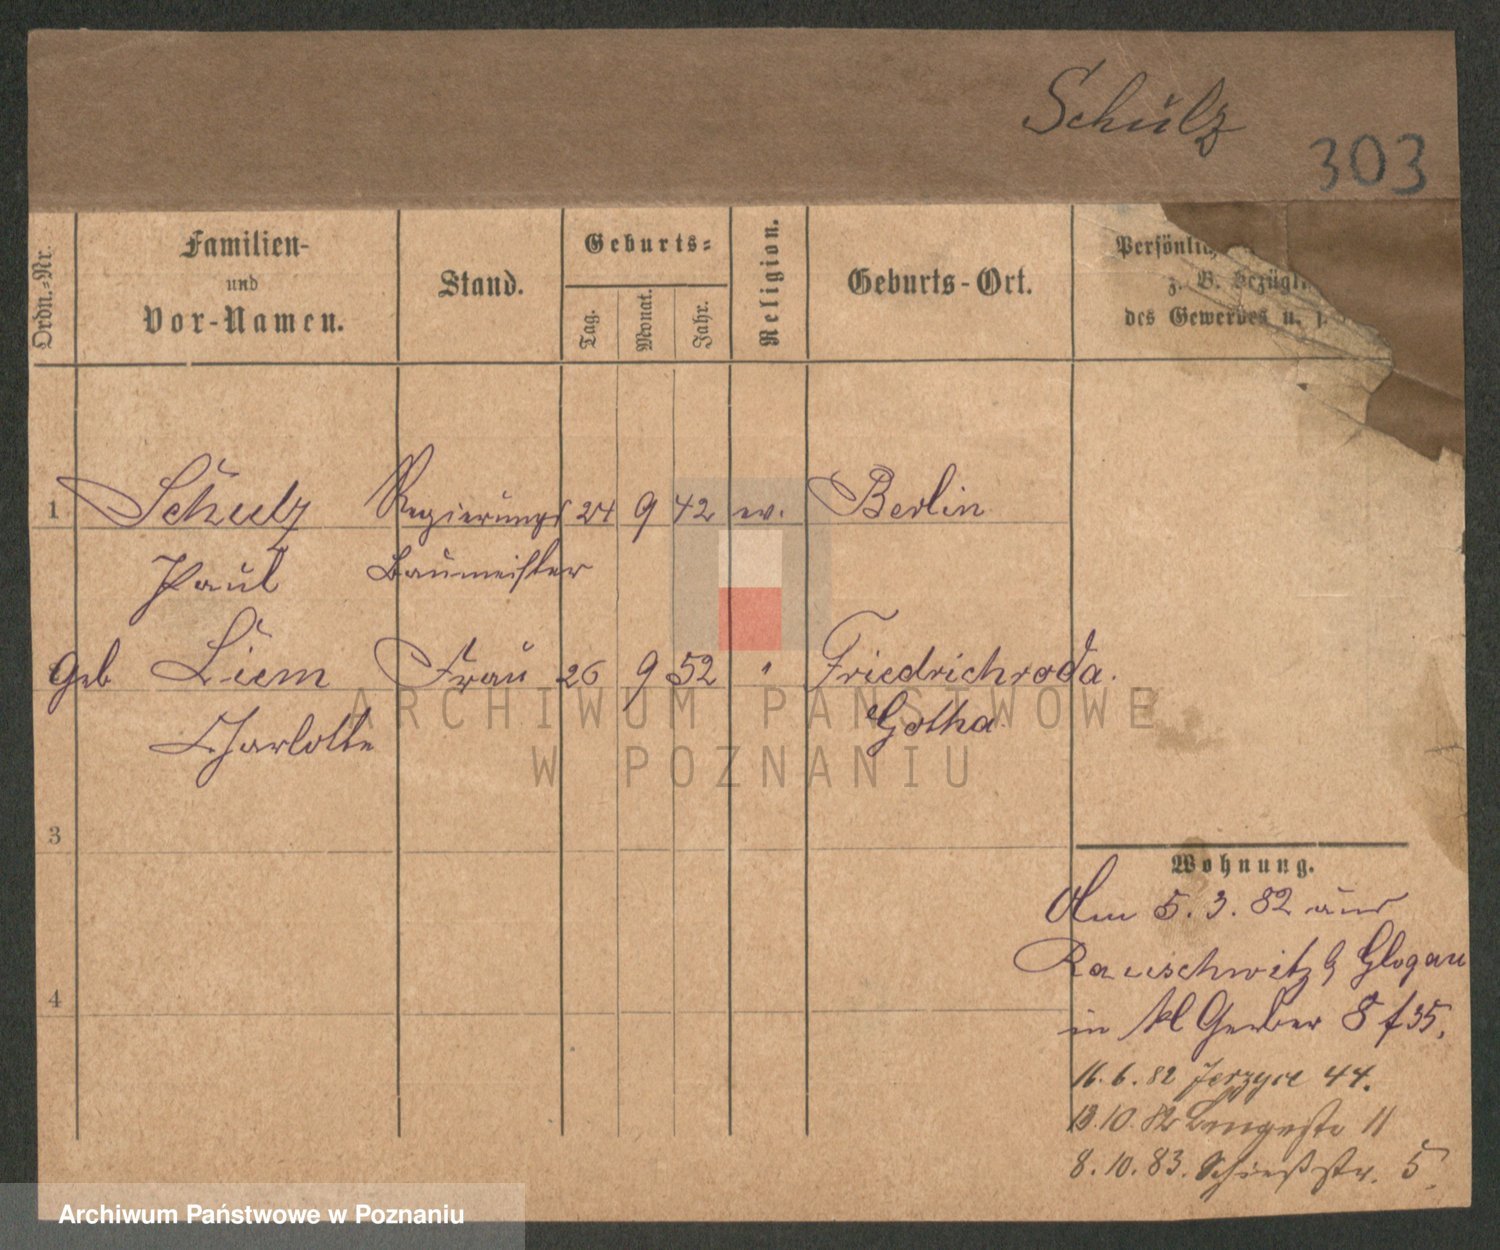 Schulz
303
Ordn.-Nr.
Familien-
und
Vor-Namen.
Stand.
Geburts-
Tag.
Monat.
Jahr.
Religion.
Geburts-Ort.
Persönlic
z. B. bezügl.
des Gewerbes u.
1 Schulz Regierungs 24 9 42 ev. Berlin
Paul Baumeister
geb Liem Frau 26 9 52 " Friedrichroda.
Charlotte Gotha
ARCHIWUM PAŃSTWOWE
W POZNANIU
3
4
Wohnung.
Am 5. 3. 82 aus
Rauschwitz Glogau
in Kl Gerber 8 f 35.
16. 6. 82 Jerzyce 44.
13. 10. 82 11
8. 10. 83. Schießstr. 5.
Archiwum Państwowe w Poznaniu